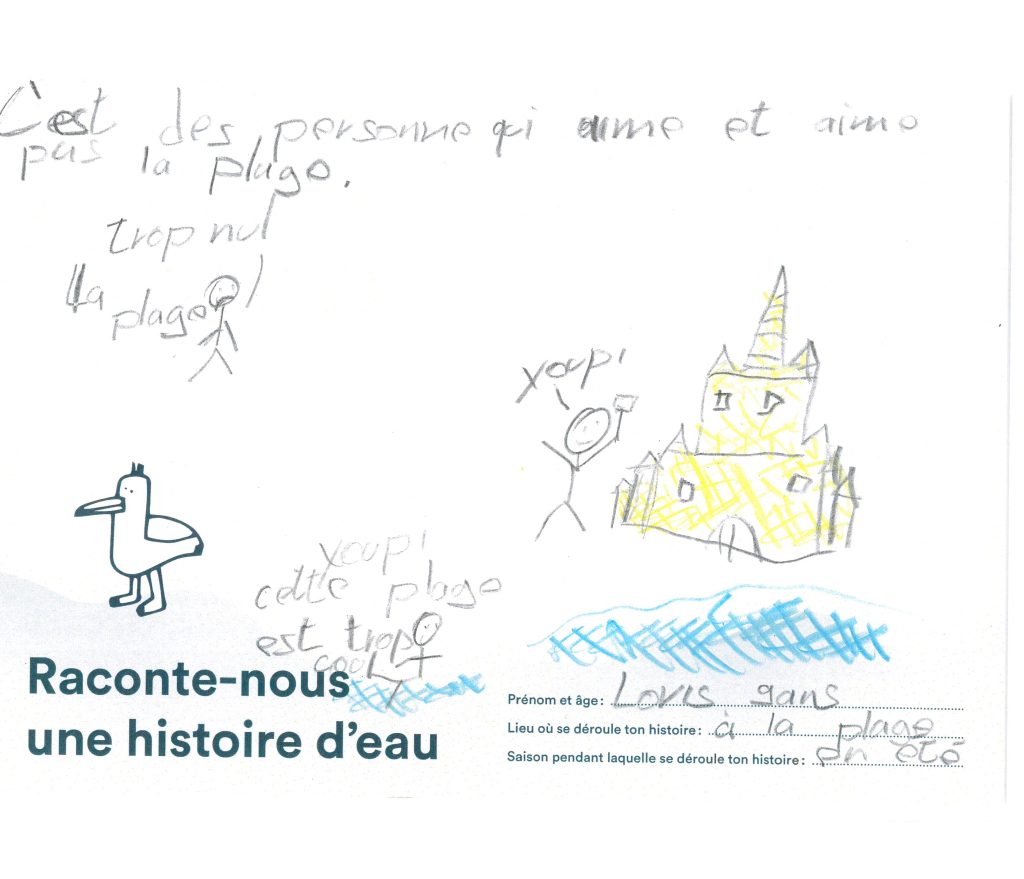 C'est des personne qi aime et aime
pas la plage.
trop nul
la
plage
youpi
youpi
cette plage
est trop
cool
Raconte-nous
une histoire d'eau
Prénom et âge : Lovis 9ans
Lieu où se déroule ton histoire : à la plage
Saison pendant laquelle se déroule ton histoire : en été